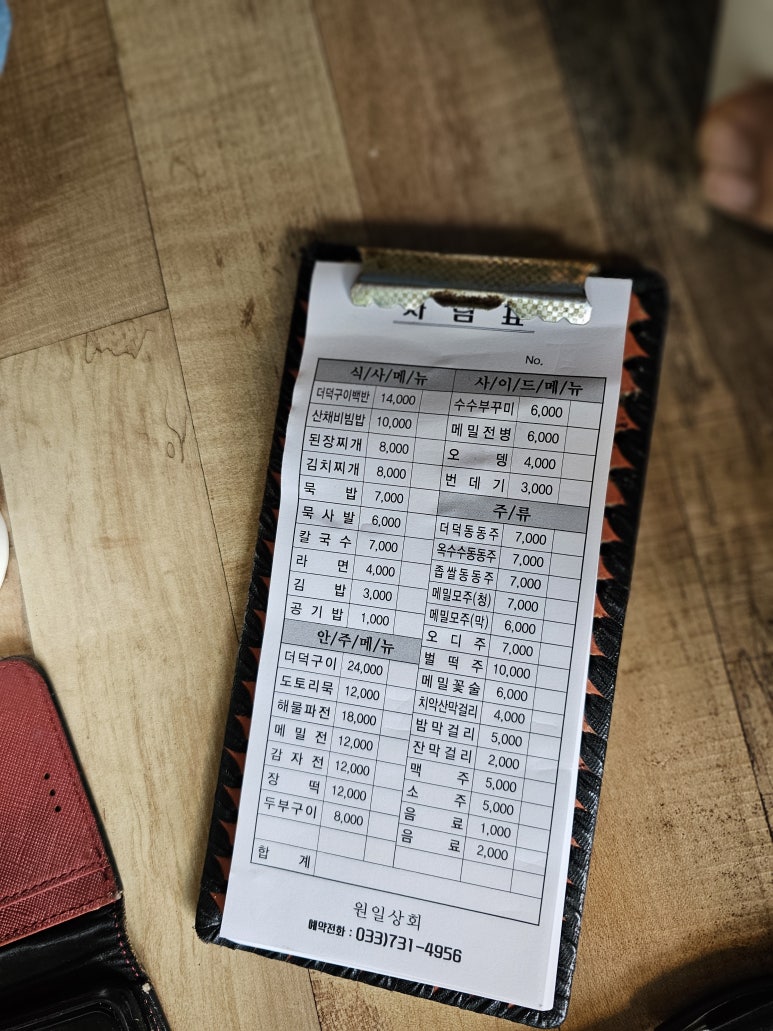 차 림 표
No.
식/사/메/뉴
더덕구이백반 14,000
산채비빔밥 10,000
된장찌개 8,000
김치찌개 8,000
묵 밥 7,000
묵사발 6,000
칼국수 7,000
라 면 4,000
김 밥 3,000
공기밥 1,000
안/주/메/뉴
더덕구이 24,000
도토리묵 12,000
해물파전 18,000
메밀전 12,000
감자전 12,000
장 떡 12,000
두부구이 8,000
합 계
사/이/드/메/뉴
수수부꾸미 6,000
메밀전병 6,000
오 뎅 4,000
번데기 3,000
주/류
더덕동동주 7,000
옥수수동동주 7,000
좁쌀동동주 7,000
메밀모주(청) 7,000
메밀모주(막) 6,000
오디주 7,000
벌떡주 10,000
메밀꽃술 6,000
치악산막걸리 4,000
밤막걸리 5,000
잔막걸리 2,000
맥 주 5,000
소 주 5,000
음 료 1,000
음 료 2,000
원일상회
예약전화 : 033)731-4956